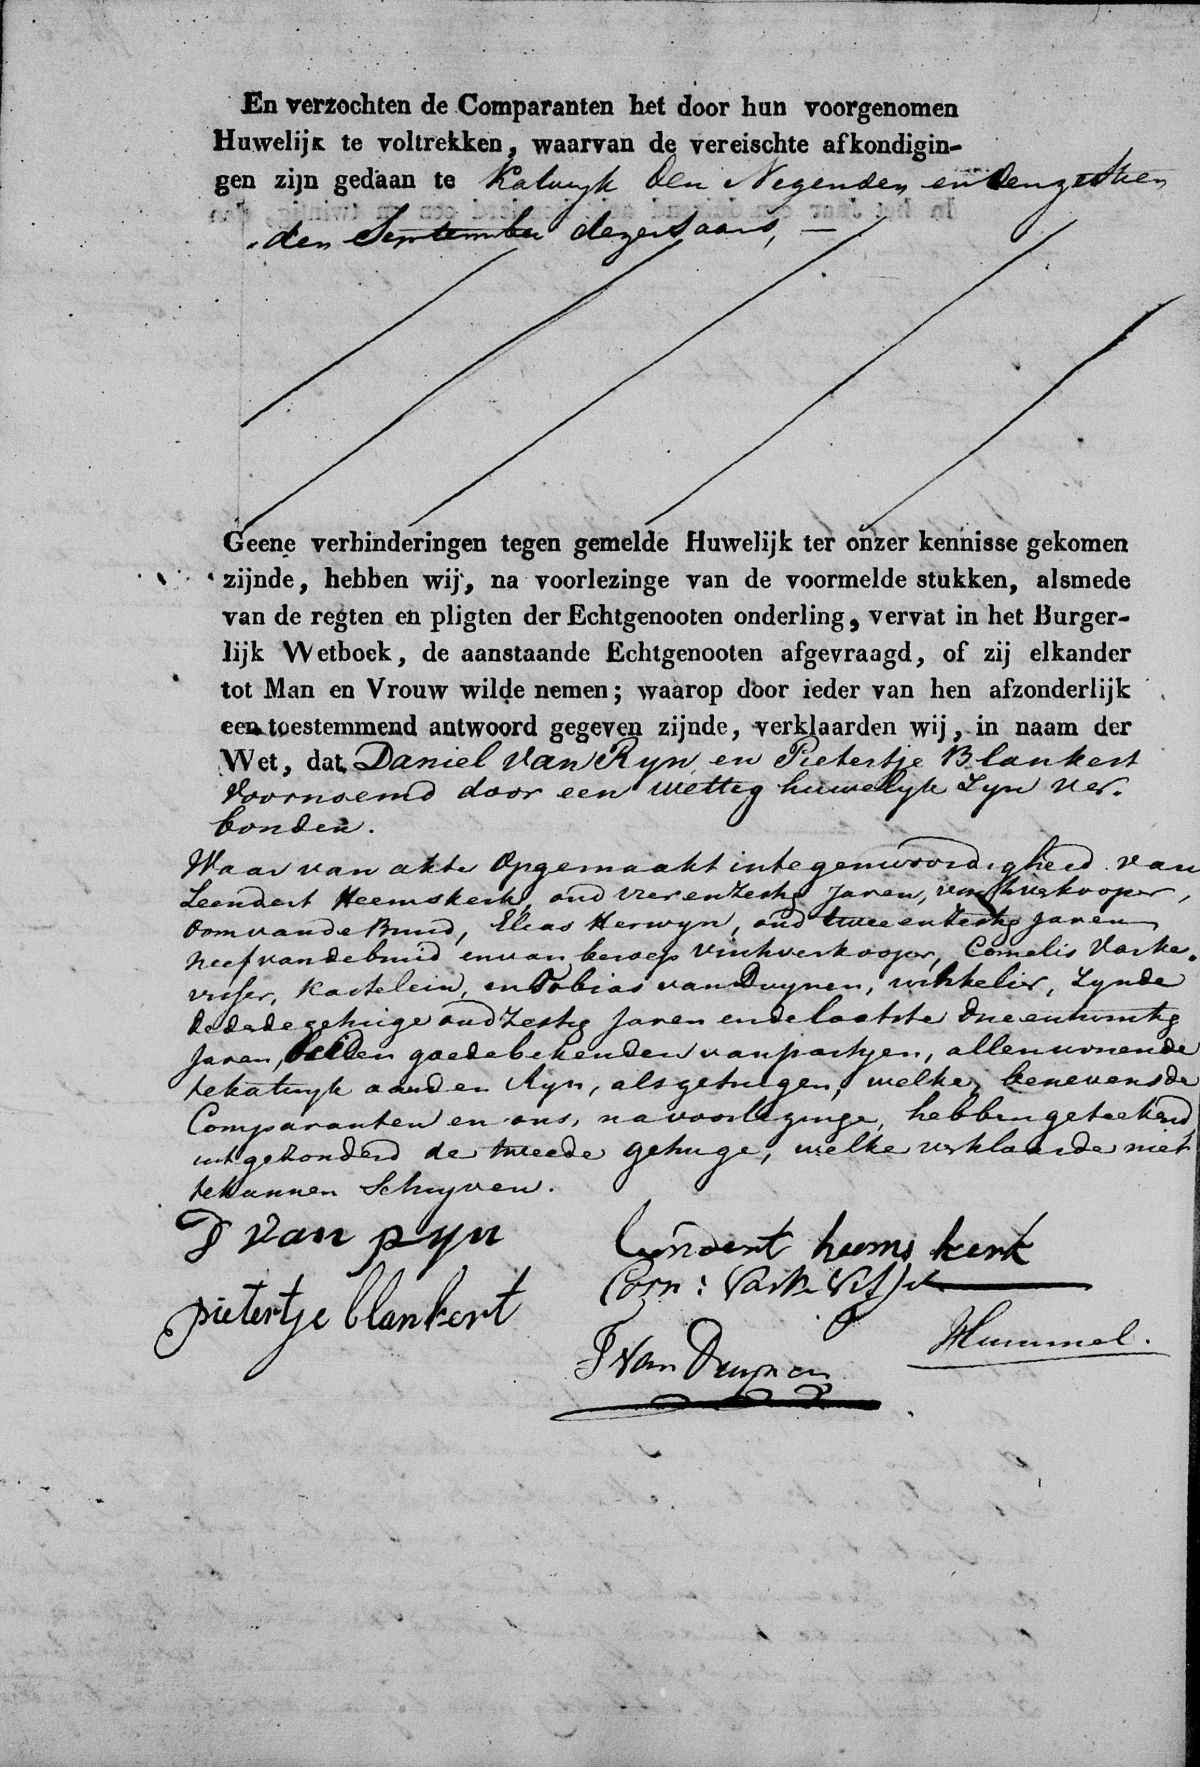 En verzochten de Comparanten het door hun voorgenomen
Huwelijk te voltrekken, waarvan de vereischte afkondigin-
gen zijn gedaan te Katwyk den Negenden en den zestien
den September dezes Jaars, —
Geene verhinderingen tegen gemelde Huwelijk ter onzer kennisse gekomen
zijnde, hebben wij, na voorlezinge van de voormelde stukken, alsmede
van de regten en pligten der Echtgenooten onderling, vervat in het Burger-
lijk Wetboek, de aanstaande Echtgenooten afgevraagd, of zij elkander
tot Man en Vrouw wilde nemen; waarop door ieder van hen afzonderlijk
een toestemmend antwoord gegeven zijnde, verklaarden wij, in naam der
Wet, dat Daniel van Ryn en Pietertje Blankert
voornoemd door een wettig huwelyk Zyn ver-
bonden.
Waar van akte opgemaakt in tegenwoordigheid van
Leendert Heemskerk, oud vier en Zestig Jaren, vischverkooper,
Oom van de Bruid, Elias Herwyn, oud twee en Zestig Jaren
Neef van de bruid en van beroep vischverkooper, Cornelis Varke-
visser, Kastelein, en Tobias van Duynen, winkelier, Zynde
de derde getuige oud Zestig Jaren en de laatste drie en twintig
Jaren, beiden goede bekenden van partyen, allen wonende
te Katwyk aan den Ryn, als getuigen, welke, benevens de
Comparanten en ons, na voorlezinge, hebben geteekend
uitgezonderd de tweede getuige, welke verklaarde niet
te kunnen Schryven.
D van ryn
leendert heemskerk
Corn: Varkevisser
pietertje blankert
Hummel.
T van Duynen